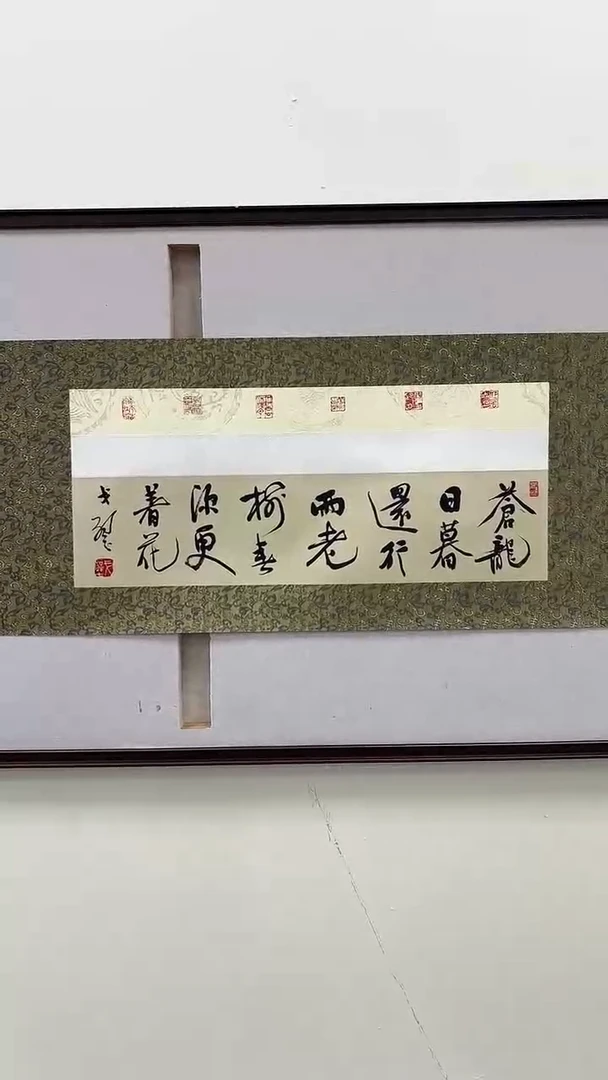 蒼龍
日暮
還行
雨老
樹春
深更
著花